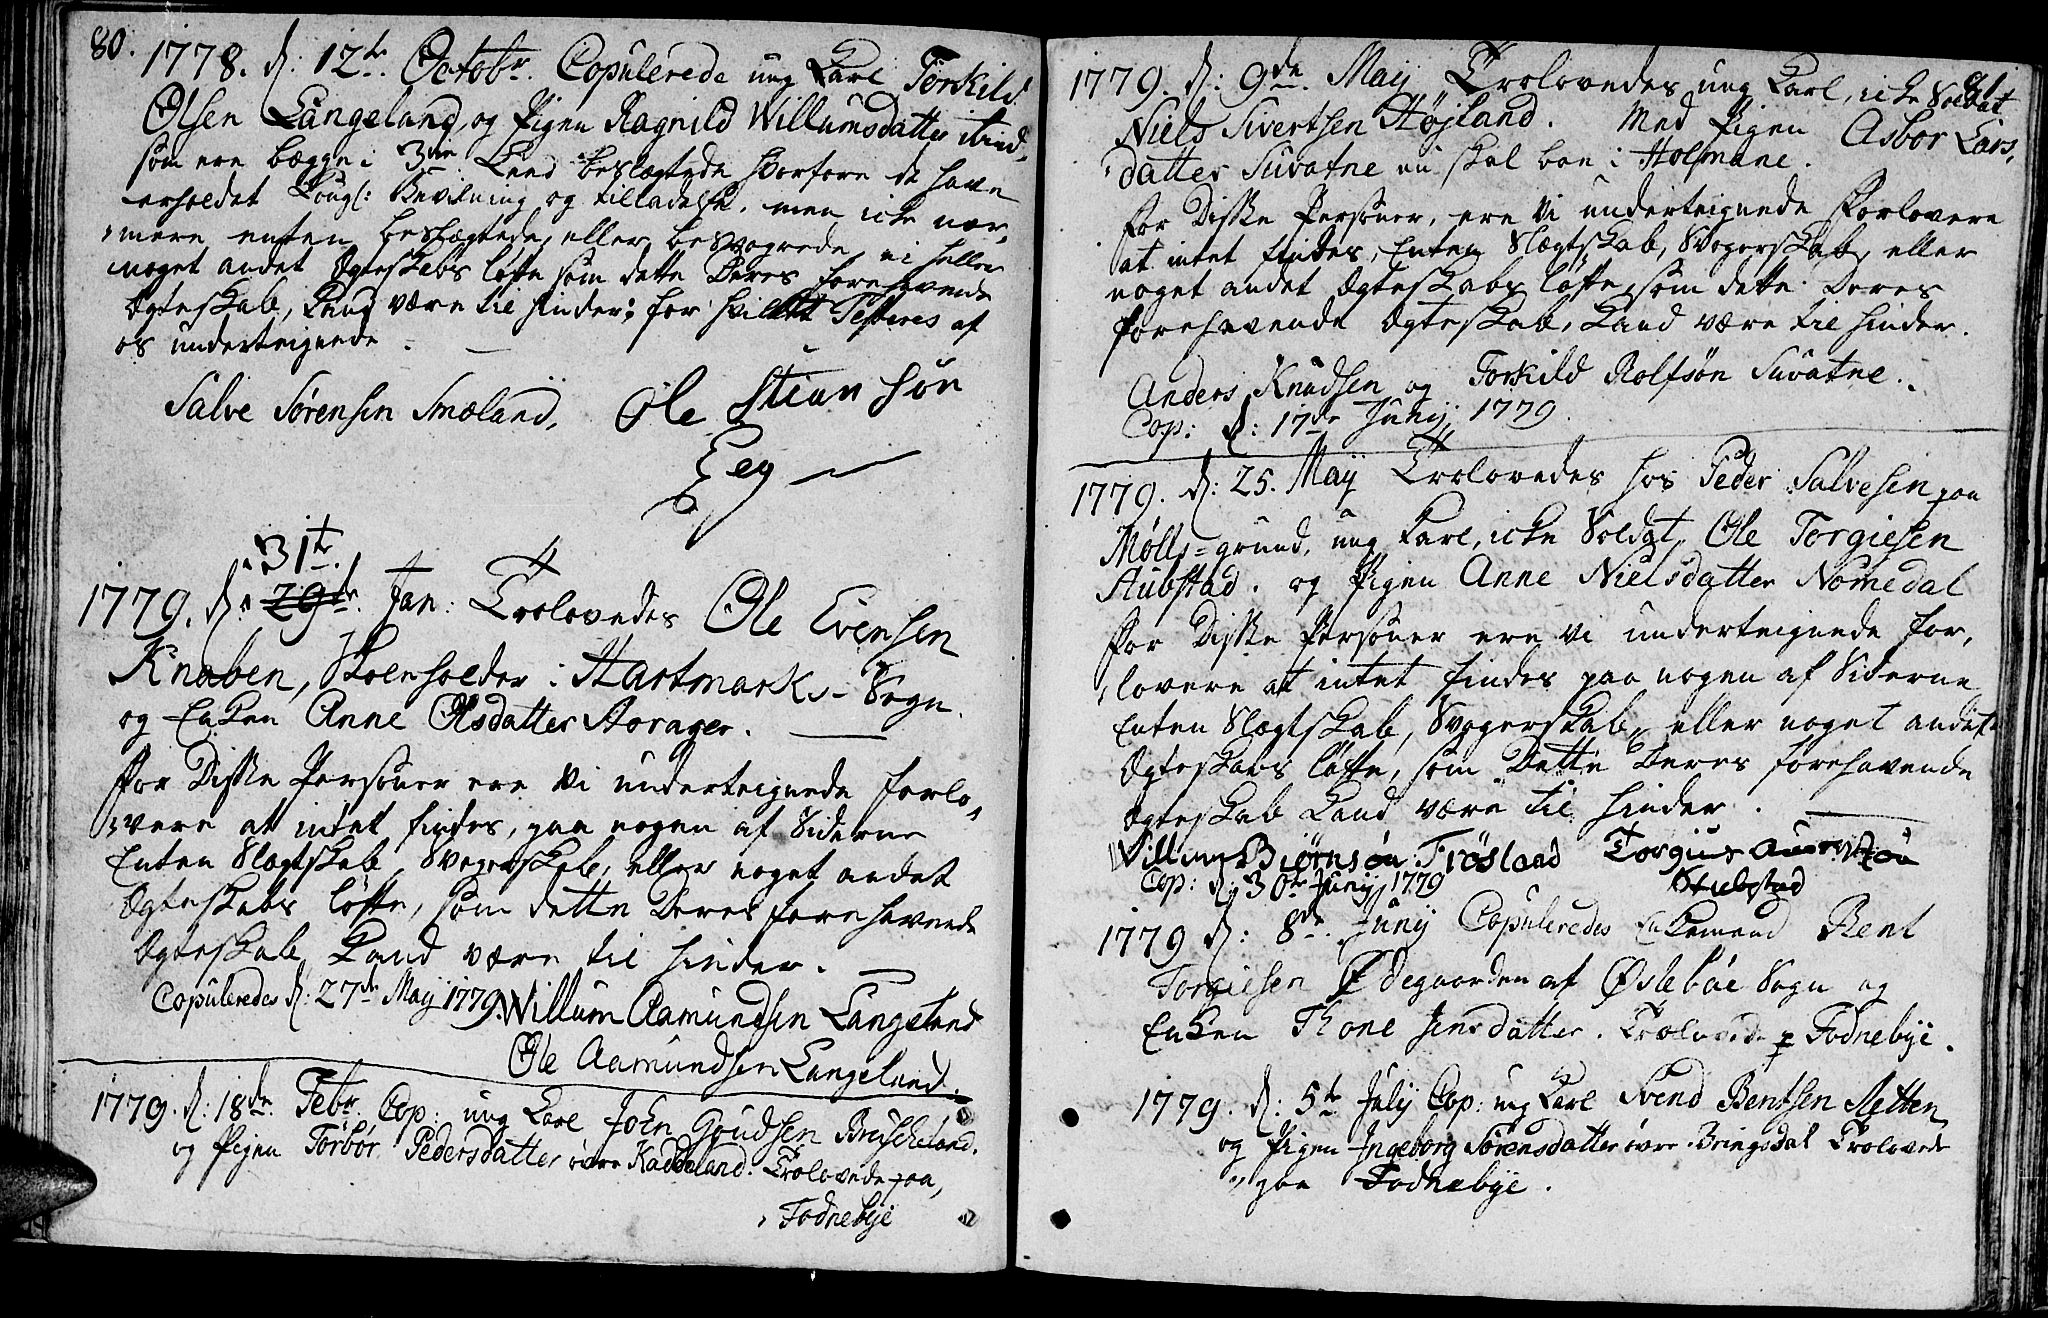 80.
1778. d: 12te. Octobr. Copulerede ung Karl Torkild
Olsen Langeland, og Pigen Ragnild Willumsdatter ibid.
som ere bægge i 3die Leed beslægtede hvorfore de have
erholdet Kongl: Bevilning og tilladelse. men icke nær,
mere enten beslægtede eller besvogrede, ei heller
noget andet Ægteskabs løfte som dette Deres forehavende
Ægteskab, kand være til hinder; for hvilket Testeres af
os underteignede.
Salve Sørensen Smæland, Ole Stian søn
Eeg
31te.
1779. d: 29de. Jan: Trolovedes Ole Evensen
Knaben, Skoleholder i Hartmarks-Sogn.
og Enken Anne Olsdatter Aorager.
For Disse Persohner ere vi underteignede forlo,
vere at intet findes, paa nogen af Siderne
Enten Slægtskab, Svogerskab, eller noget andet
Ægteskabs løfte, som dette Deres forehavende
Ægteskab kand være til hinder.
Copuleredes d: 27de May 1779. Willum Aamundsen Langeland
Ole Aamundsen Langeland.
1779. d: 18de. Febr. Cop: ung Karl John Goudsen Breischeland.
og Pigen Torbor Pedersdatter øvre Kaddeland. Trolovede paa,
Fodnebye
81.
1779. d: 9de. Maij Trolovedes ung Karl, icke Soldat
Niels Sivertsen Højland. Med Pigen Asbor Lars,
datter Suvatne nu skal boe i Holmane.
For Disse Persohner, ere vi underteignede Forlovere
at intet findes, Enten Slægtskab, Svogerskab, eller
noget andet Ægteskabs løfte, som dette Deres
forehavende Ægteskab, kand være til hinder.
Anders Knudsen og Torkild Rolfsøn Suvatne.
Cop: d: 17de Junij 1779.
1779. d: 25. Maij Trolovedes hos Peder Salvesen paa
Mølls=grund, ung Karl, icke Soldat, Ole Torgiesen
Stubstad. og Pigen Anne Nielsdatter Nomedal
For Disse Persohner ere vi underteignede for,
lovere at intet findes paa nogen af Siderne
Enten Slægtskab, Svogerskab, eller noget andet
Ægteskabs løfte, som Dette Deres forehavende
Ægteskab kand være til hinder.
Villum Biørnsøn Frøsland Torgius
Stubstad
Cop: d: 30te Junij 1779
1779 d: 8de. Junij Copuleredes Enkemand Bent
Torgiesen Ødegaarden af Øslebøe Sogn og
Enken Thone Jensdatter. Trolovede p Fodnebye.
1779. d: 5te July Cop: ung Karl Svend Bentsen Retten
og Pigen Ingeborg Sørensdatter øvre Bringsdal Trolovede
paa Fodnebye.